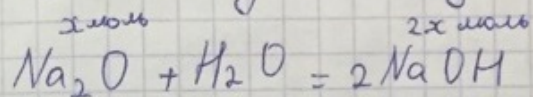 x моль 2x моль
Na₂O + H₂O = 2NaOH